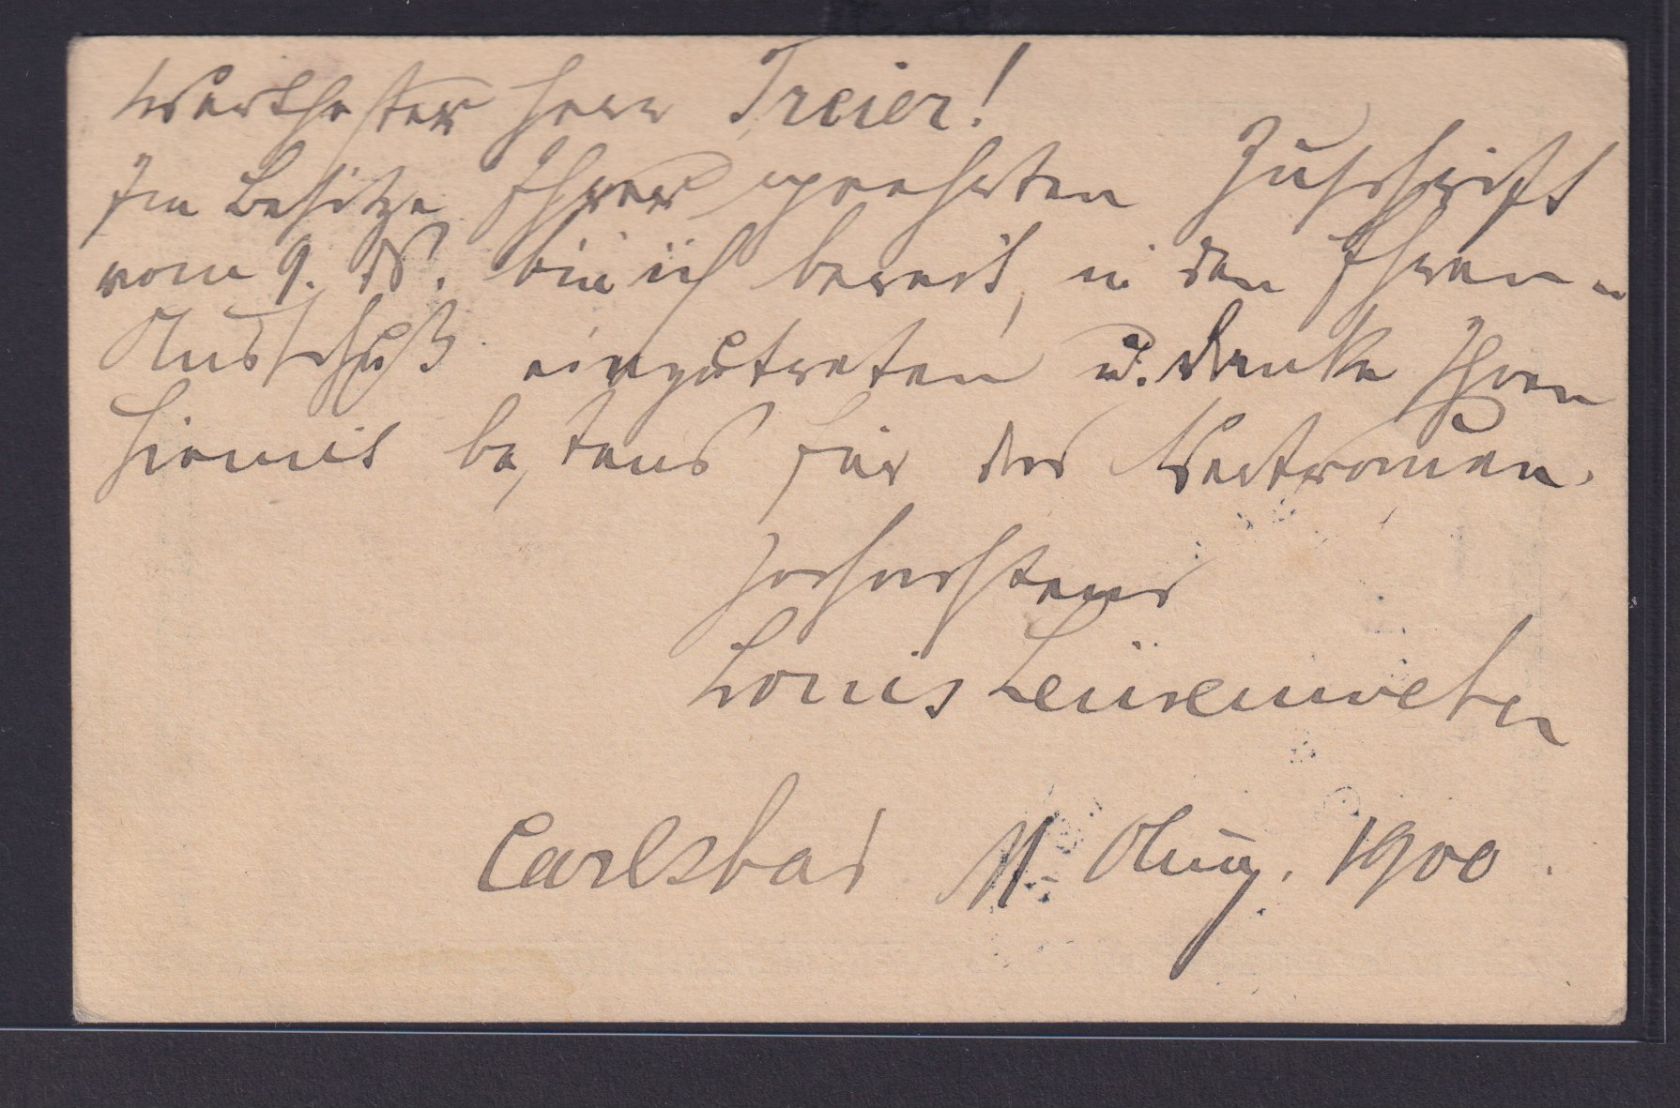 Werthester Herr Treier!
Im Besitze Ihrer geehrten Zuschrift
vom 9. ds. bin ich bereit, in den Ehren-
Ausschuß einzutreten u. danke Ihnen
hiemit bestens für das Vertrauen.
Hochachtend
Louis
Carlsbad 11 Aug. 1900.